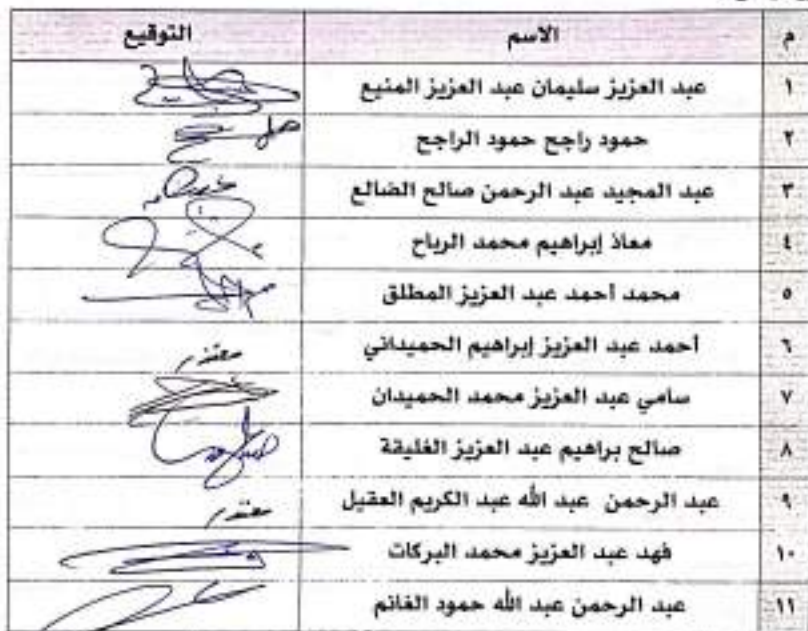 م الاسم التوقيع
١ عبد العزيز سليمان عبد العزيز المنيع
٢ حمود راجح حمود الراجح
٣ عبد المجيد عبد الرحمن صالح الضالع
٤ معاذ إبراهيم محمد الرباح
٥ محمد أحمد عبد العزيز المطلق
٦ أحمد عبد العزيز إبراهيم الحميداني معتذر
٧ سامي عبد العزيز محمد الحميدان
٨ صالح براهيم عبد العزيز الغليقة
٩ عبد الرحمن عبد الله عبد الكريم العقيل معتذر
١٠ فهد عبد العزيز محمد البركات
١١ عبد الرحمن عبد الله حمود الغانم